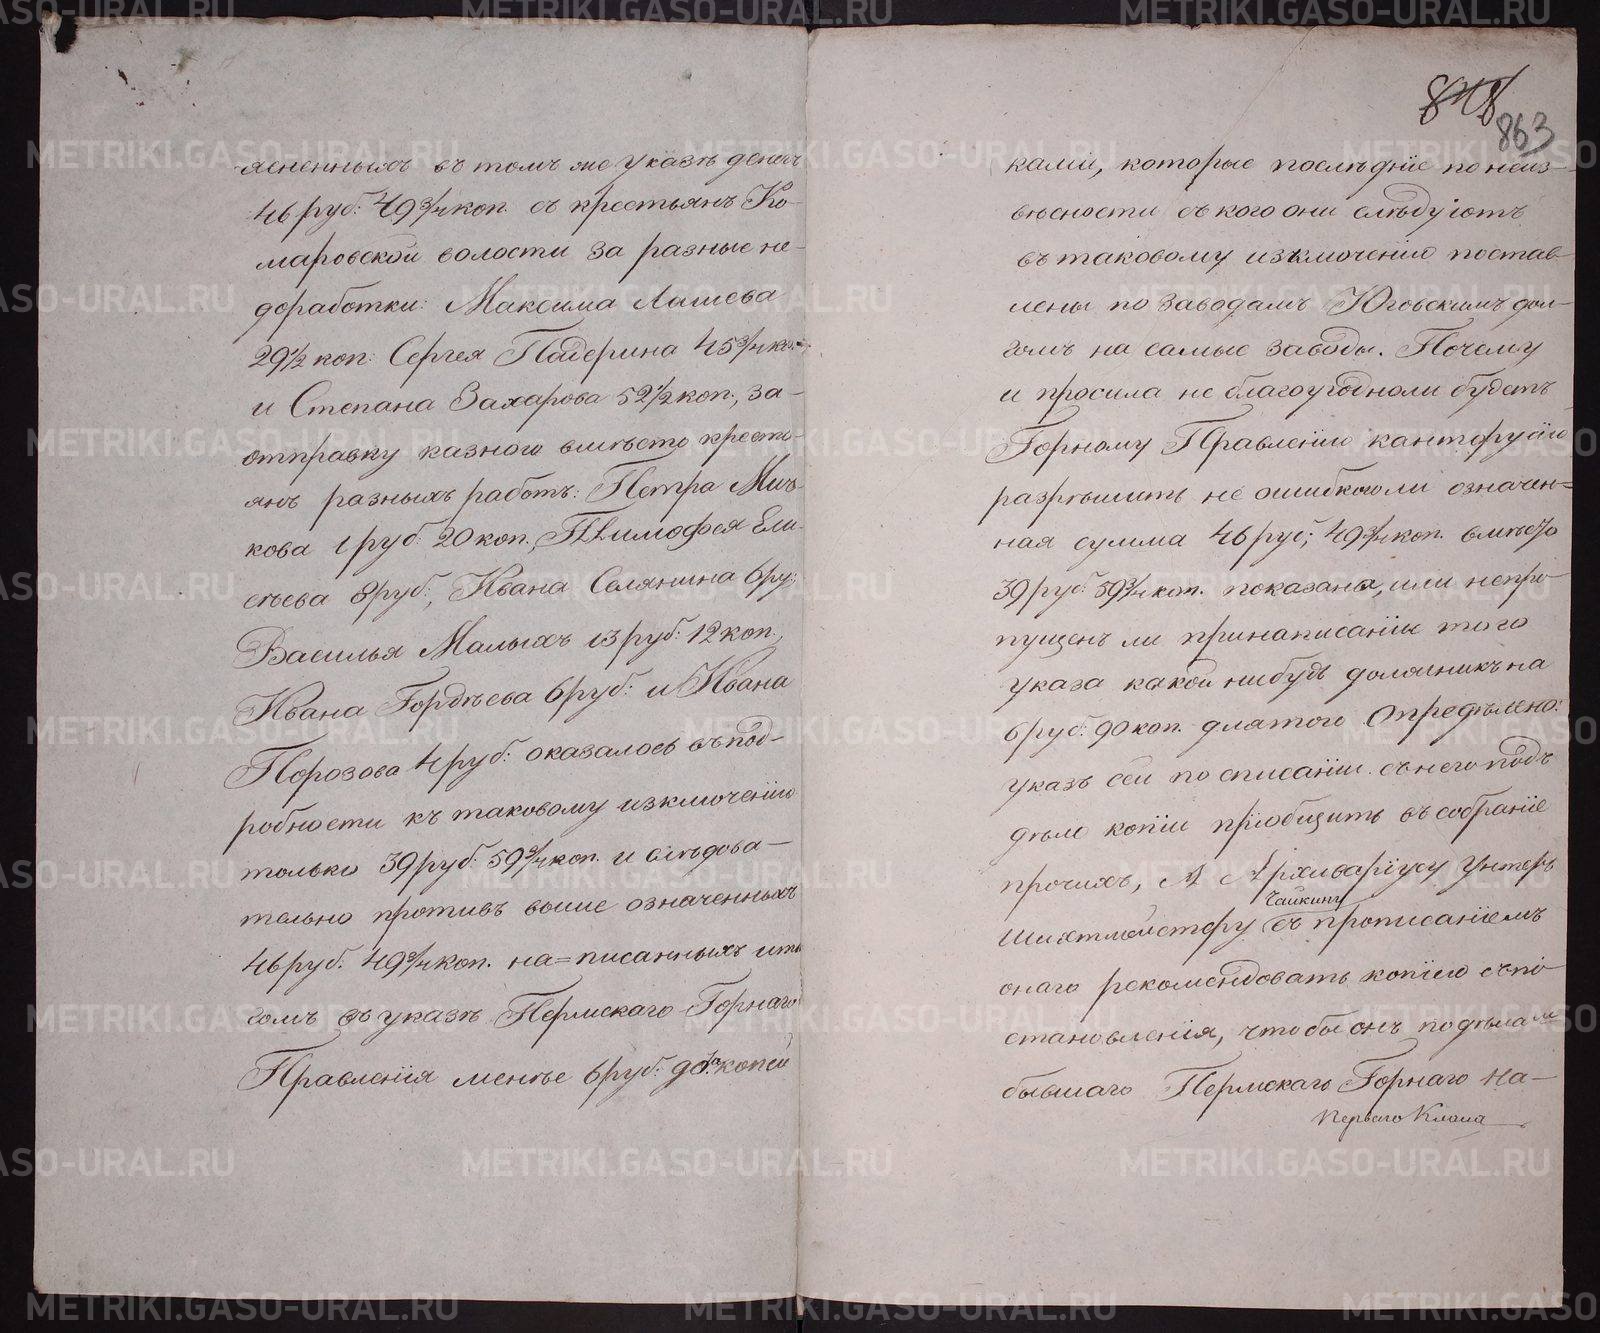 яененныхъ въ томъ же указѣ денегъ
46 руб: 49 3/4 коп. съ крестьянъ Ко-
маровской волости за разные не-
доработки: Максима Лашева
29 1/2 коп: Сергея Падерина 45 3/4 ко:
и Степана Захарова 52 1/2 коп:, за-
отправку казною вмѣсто кресть-
янъ разныхъ работъ: Петра Мич-
кова 1 руб. 20 коп., Тимофея Ели-
сѣева 8 руб:, Ивана Селянина 6 ру:,
Василья Малыхъ 13 руб: 12 коп,
Ивана Гордѣева 6 руб: и Ивана
Порозова 4 руб: оказалось въ под-
робности къ таковому изключенію
только 39 руб: 59 3/4 коп. и слѣдова-
тельно противъ выше означенныхъ
46 руб. 49 3/4 коп. на=писанныхъ ито
гомъ въ указѣ Пермскаго Горнаго
Правленія менѣе 6 руб: 90 копѣй
863
ками, которые послѣдніе по неиз-
вѣсности съ кого они слѣдуютъ
въ таковому изключенію постав-
лены по заводамъ Юговскимъ дол-
гомъ на самые заводы. Почему
и просила не благоугодноли будетъ
Горному Правленію кантору сію
разрѣшить не ошибкоюли означен-
ная сумма 46 руб; 49 3/4 коп. вмѣсто
39 руб: 59 3/4 коп. показана, или непро-
пущенъ ли принаписаніи того
указа какой нибудь должникъ на
6 руб: 90 коп. длятого Опредѣлено:
указъ сей по списаніи съ него подъ
дѣло копіи пріобщить въ собраніе
прочихъ, А Архиваріусу Унтеръ
Чайкину
Шихтмейстеру съ прописаніемъ
онаго рекомендовать копіею съ по-
становленія, чтобы онъ по дѣлам
бывшаго Пермскаго Горнаго На-
Перваго Класа